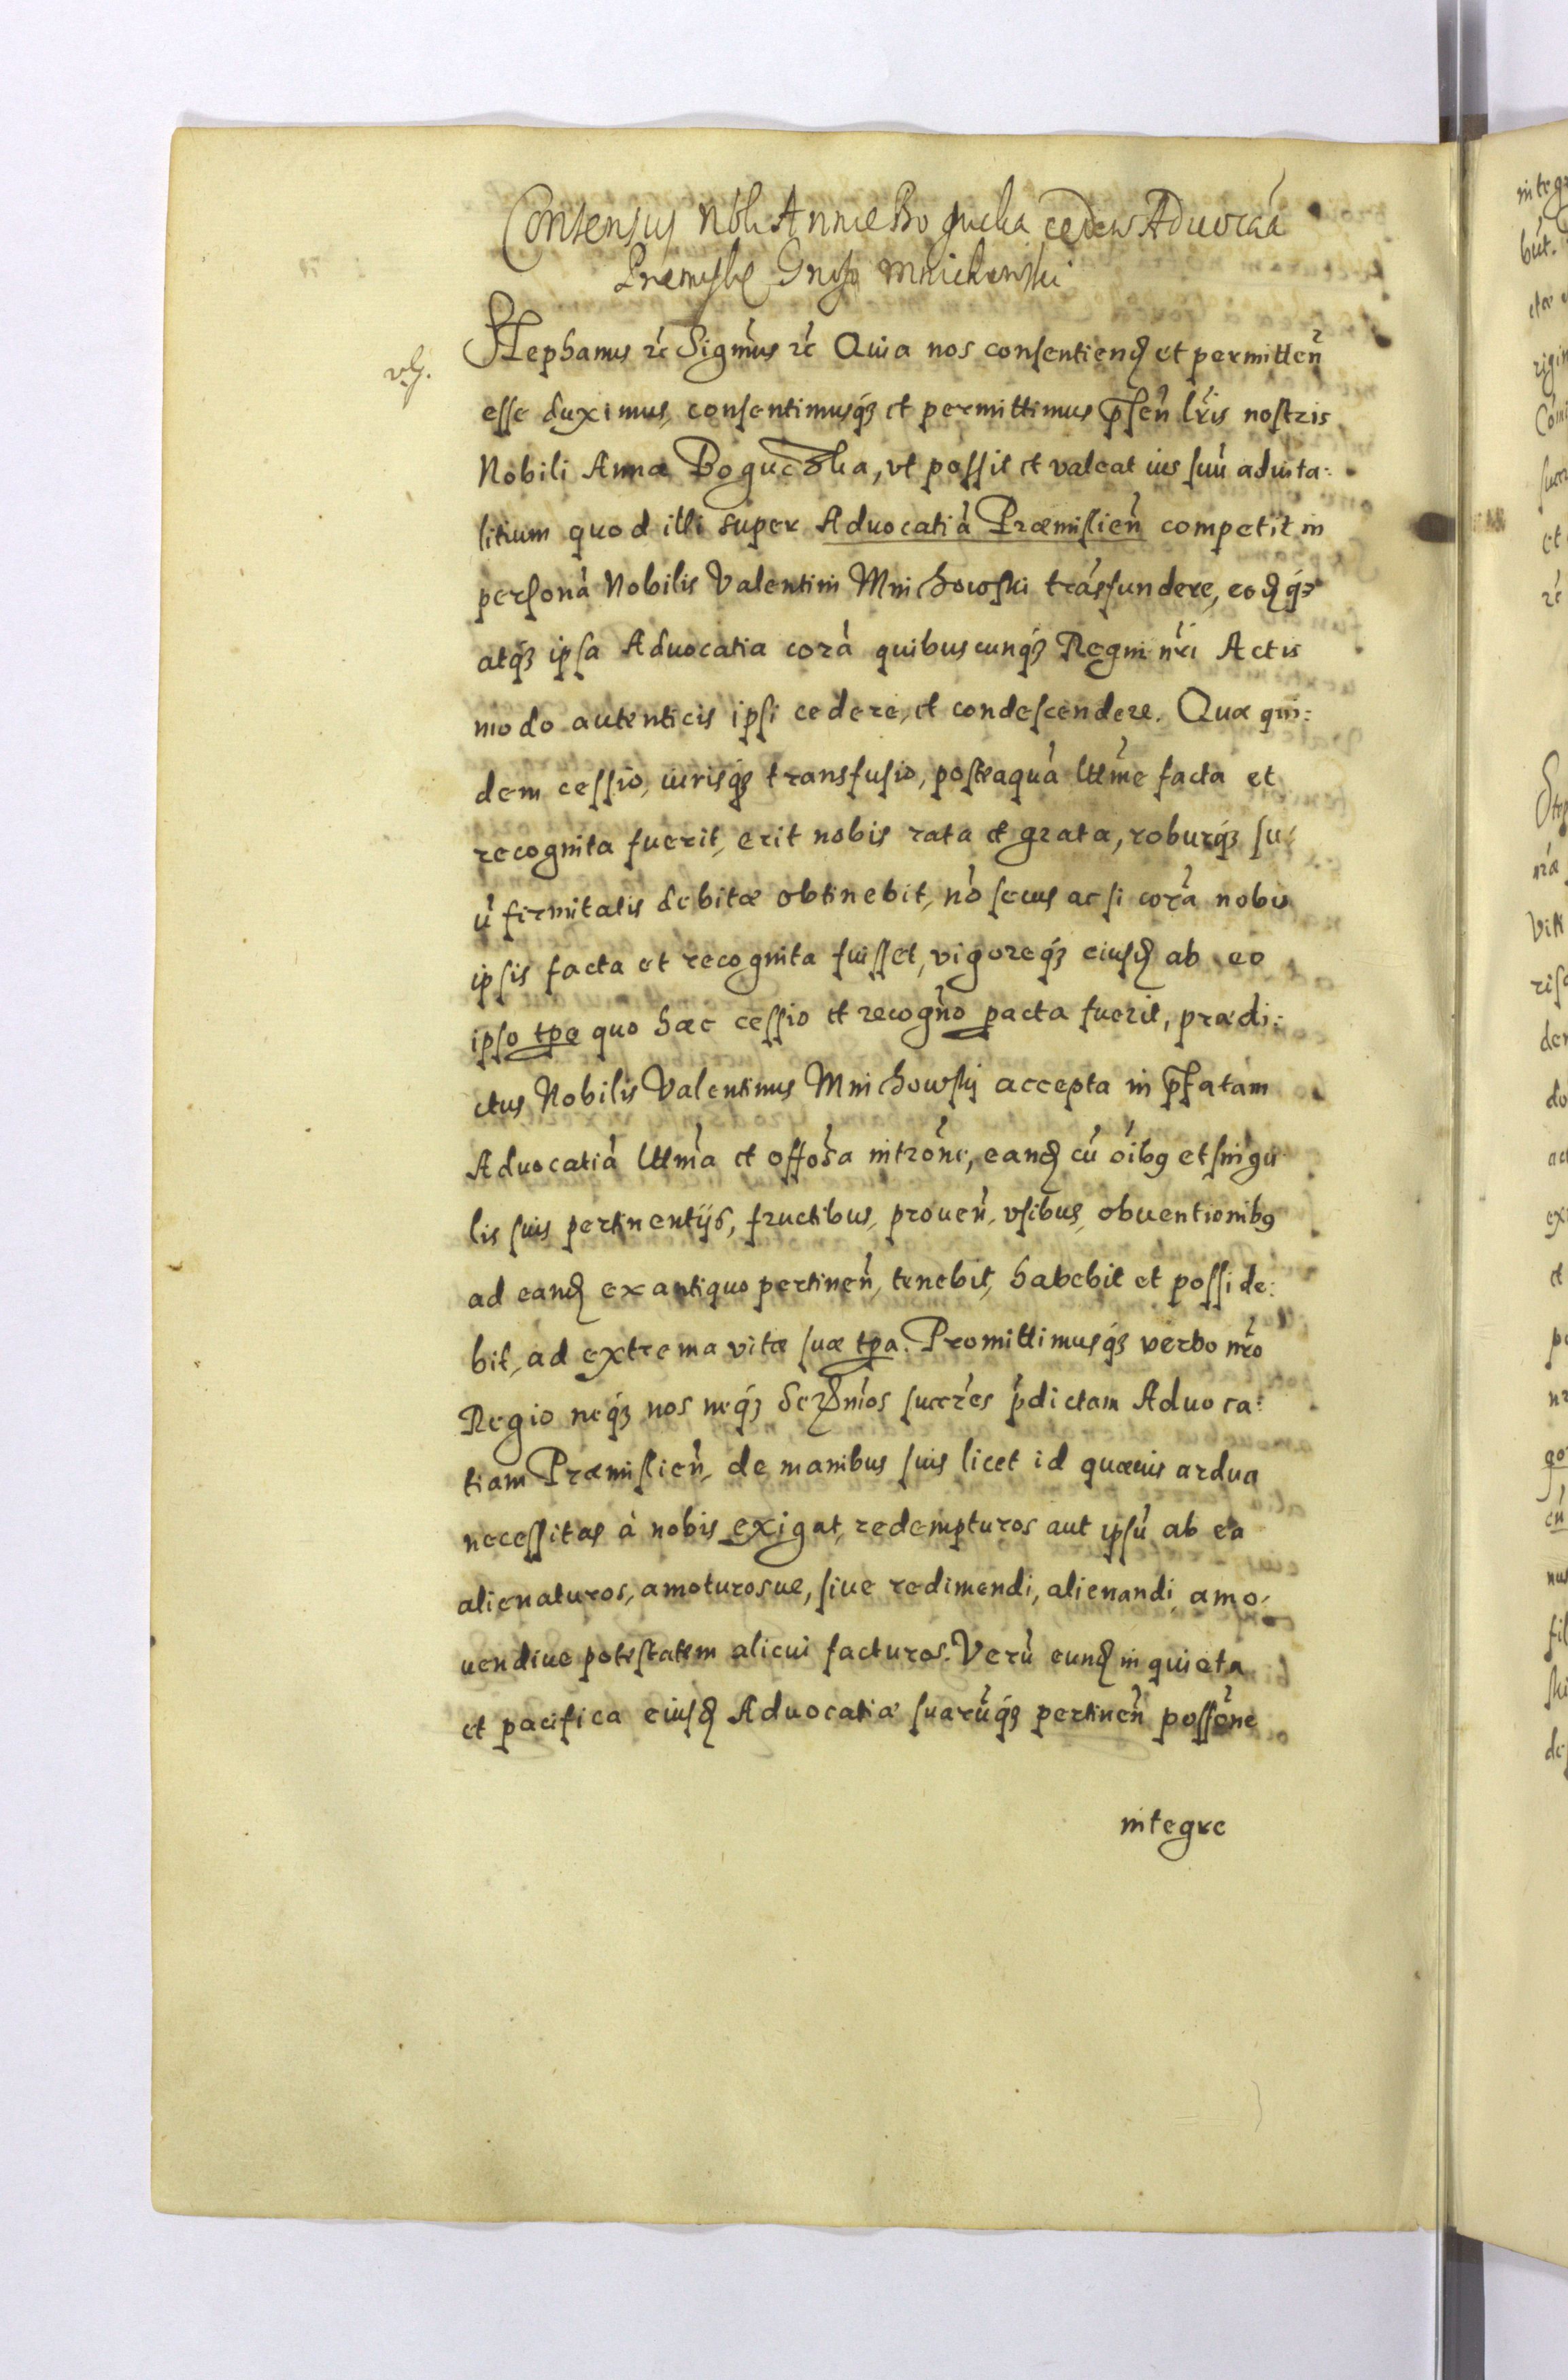 Consensus Nbli Annae Bogucka cedendi Aduocatiã
Premysly Gnoso Mnichowski
vlg.
Stephanus ꝛc Signûs ꝛc Quia nos consentienđ et permitteñ
esse duximus, consentimusq́ꝫ et permittimus p̃señ lr̃is nostris
Nobili Annæ Boguczka, vt possit et valeat ius suũ aduita:
litium quod illi super Aduocatiã Præmislieñ competit in
personã Nobilis Valentini Mnichowski trãsfundere, eođq́ꝫ
atq́ꝫ ipsa Aduocatia corã quibuscunq́ꝫ Regni nr̃i Actis
modo autenticis ipsi cedere, et condescendere. Quæ qui:
dem cessio, iurisq́ꝫ transfusio, posteaquã lttm̃e facta et
recognita fuerit, erit nobis rata et grata, roburq́ꝫ su:
ũ firmitatis debitæ obtinebit, nõ secus ac si corã nobis
ipsis facta et recognita fuisset, vigoreq́ꝫ eiusđ ab eo
ipso tp̱e quo hæc cessio et recogño p̱acta fuerit, prædi:
ctus Nobilis Valentinus Mnichowskij accepta in p̃fatam
Aduocatiã lttm̃a et offõsa intrõne, eanđ cũ õibꝯ et singu
lis suis pertinentijs, fructibus, proueñ, vsibus, obuentionibꝯ
ad eanđ ex antiquo pertineñ, tenebit, habebit et posside:
bit, ad extrema vitæ suæ tp̱a. Promittimusq́ꝫ verbo nr̃o
Regio neq́ꝫ nos neq́ꝫ Serẽnm̃os succr̃es p̃dictam Aduoca:
tiam Præmislieñ, de manibus suis licet id quæuis ardua
necessitas à nobis exigat, redempturos aut ipsũ ab ea
alienaturos, amoturosue, siue redimendi, alienandi amo:
uendiue potestatem alicui facturos. Verũ eunđ in quieta
et pacifica eiusđ Aduocatiæ suarũq́ꝫ pertineñ possõne
integre